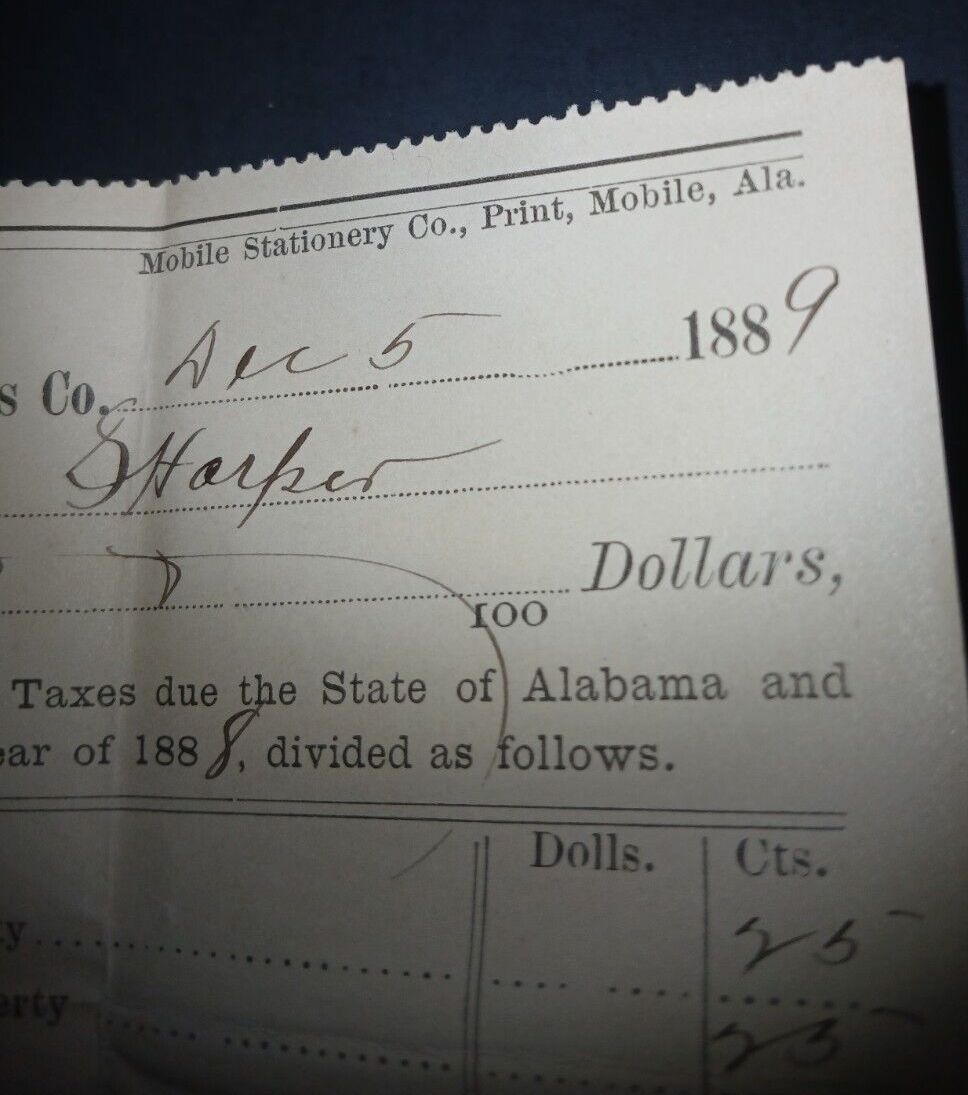 Mobile Stationery Co., Print, Mobile, Ala.
s Co. Dec 5 1889
S Harper
Dollars,
100
Taxes due the State of Alabama and
ear of 1888, divided as follows.
Dolls. Cts.
y 25
erty 25